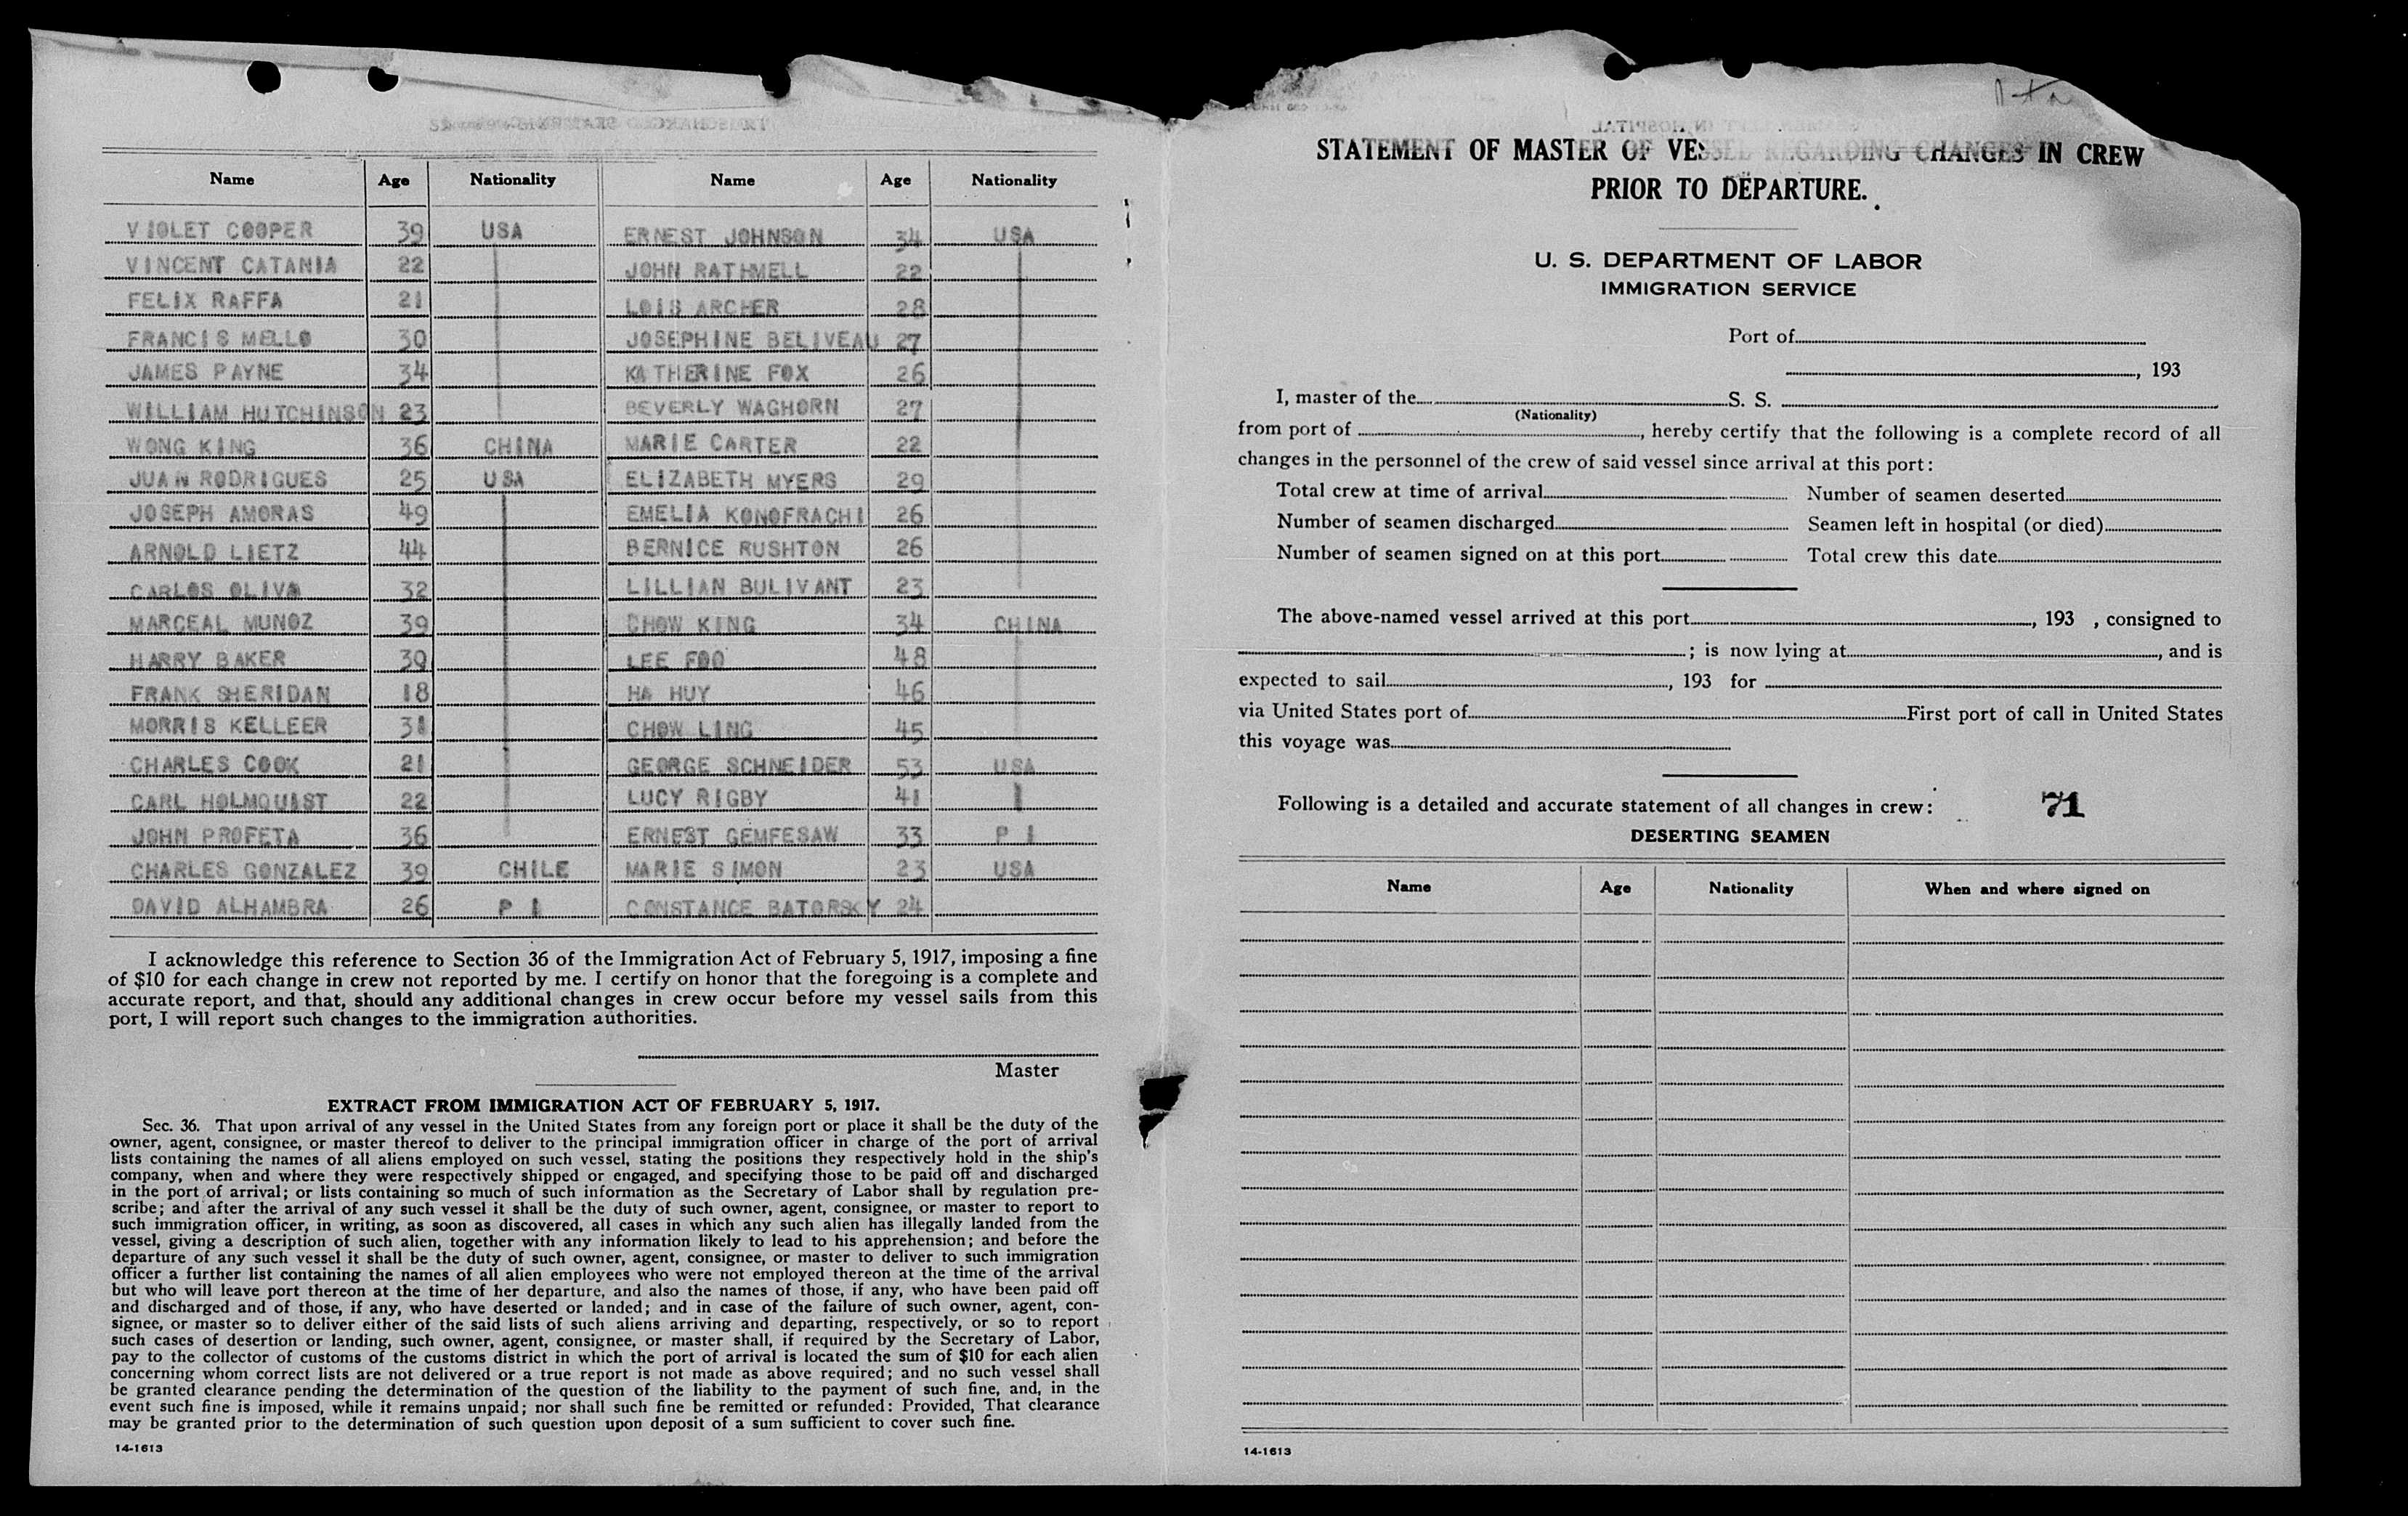 Name Age Nationality Name Age Nationality
VIOLET COOPER 39 USA ERNEST JOHNSON 34 USA
VINCENT CATANIA 22 JOHN RATHMELL 22
FELIX RAFFA 21 LOIS ARCHER 28
FRANCIS MELLO 30 JOSEPHINE BELIVEAU 27
JAMES PAYNE 34 KATHERINE FOX 26
WILLIAM HUTCHINSON 23 BEVERLY WAGHORN 27
WONG KING 36 CHINA MARIE CARTER 22
JUAN RODRIGUES 25 USA ELIZABETH MYERS 29
JOSEPH AMORAS 49 EMELIA KONOFRACHI 26
ARNOLD LIETZ 44 BERNICE RUSHTON 26
CARLOS OLIVA 32 LILLIAN BULIVANT 23
MARCEAL MUNOZ 39 CHOW KING 34 CHINA
HARRY BAKER 30 LEE FOO 48
FRANK SHERIDAN 18 HA HUY 46
MORRIS KELLEER 31 CHOW LING 45
CHARLES COOK 21 GEORGE SCHNEIDER 53 USA
CARL HOLMQUIST 22 LUCY RIGBY 41
JOHN PROFETA 36 ERNEST GEMFESAW 33 P I
CHARLES GONZALEZ 39 CHILE MARIE SIMON 23 USA
DAVID ALHAMBRA 26 P I CONSTANCE BATORSKY 24
I acknowledge this reference to Section 36 of the Immigration Act of February 5, 1917, imposing a fine
of $10 for each change in crew not reported by me. I certify on honor that the foregoing is a complete and
accurate report, and that, should any additional changes in crew occur before my vessel sails from this
port, I will report such changes to the immigration authorities.
Master
EXTRACT FROM IMMIGRATION ACT OF FEBRUARY 5, 1917.
Sec. 36. That upon arrival of any vessel in the United States from any foreign port or place it shall be the duty of the
owner, agent, consignee, or master thereof to deliver to the principal immigration officer in charge of the port of arrival
lists containing the names of all aliens employed on such vessel, stating the positions they respectively hold in the ship's
company, when and where they were respectively shipped or engaged, and specifying those to be paid off and discharged
in the port of arrival; or lists containing so much of such information as the Secretary of Labor shall by regulation pre-
scribe; and after the arrival of any such vessel it shall be the duty of such owner, agent, consignee, or master to report to
such immigration officer, in writing, as soon as discovered, all cases in which any such alien has illegally landed from the
vessel, giving a description of such alien, together with any information likely to lead to his apprehension; and before the
departure of any such vessel it shall be the duty of such owner, agent, consignee, or master to deliver to such immigration
officer a further list containing the names of all alien employees who were not employed thereon at the time of the arrival
but who will leave port thereon at the time of her departure, and also the names of those, if any, who have been paid off
and discharged and of those, if any, who have deserted or landed; and in case of the failure of such owner, agent, con-
signee, or master so to deliver either of the said lists of such aliens arriving and departing, respectively, or so to report
such cases of desertion or landing, such owner, agent, consignee, or master shall, if required by the Secretary of Labor,
pay to the collector of customs of the customs district in which the port of arrival is located the sum of $10 for each alien
concerning whom correct lists are not delivered or a true report is not made as above required; and no such vessel shall
be granted clearance pending the determination of the question of the liability to the payment of such fine, and, in the
event such fine is imposed, while it remains unpaid; nor shall such fine be remitted or refunded: Provided, That clearance
may be granted prior to the determination of such question upon deposit of a sum sufficient to cover such fine.
14-1613
STATEMENT OF MASTER OF VESSEL REGARDING CHANGES IN CREW
PRIOR TO DEPARTURE.
U. S. DEPARTMENT OF LABOR
IMMIGRATION SERVICE
Port of
, 193
I, master of the S. S.
(Nationality)
from port of , hereby certify that the following is a complete record of all
changes in the personnel of the crew of said vessel since arrival at this port:
Total crew at time of arrival Number of seamen deserted
Number of seamen discharged Seamen left in hospital (or died)
Number of seamen signed on at this port Total crew this date
The above-named vessel arrived at this port , 193 , consigned to
; is now lying at , and is
expected to sail , 193 for
via United States port of First port of call in United States
this voyage was
Following is a detailed and accurate statement of all changes in crew: 71
DESERTING SEAMEN
Name Age Nationality When and where signed on
14-1613